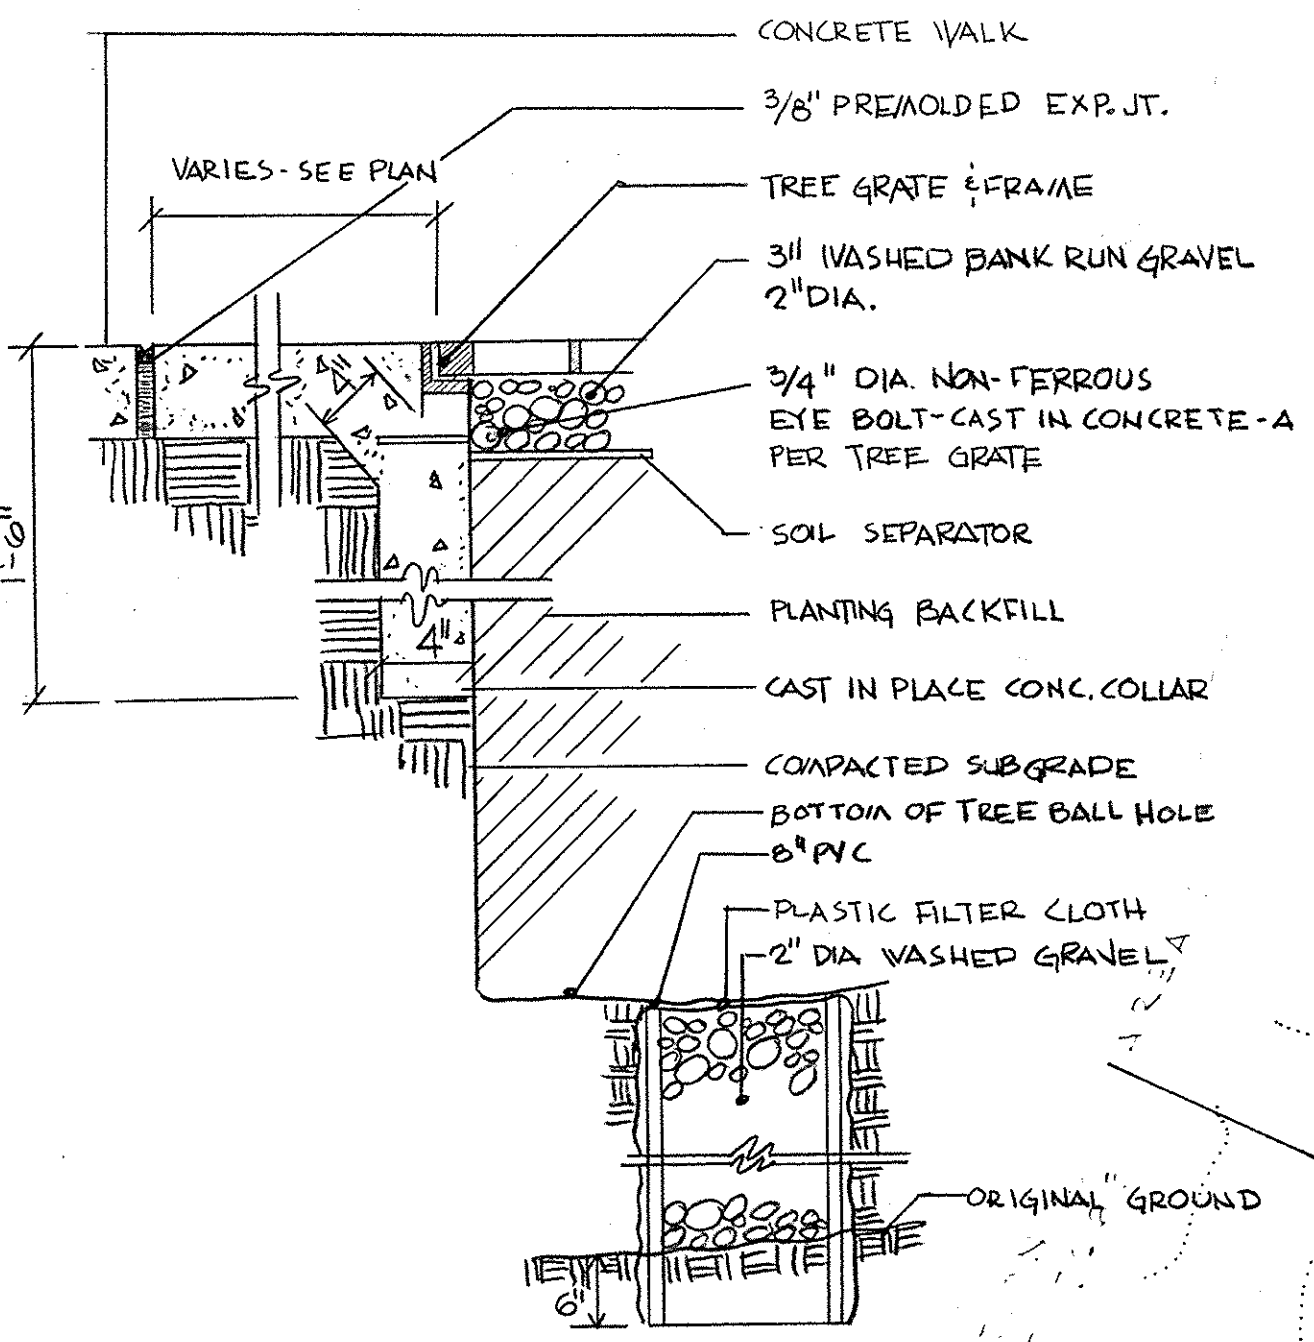 CONCRETE WALK
3/8" PREMOLDED EXP. JT.
VARIES - SEE PLAN
TREE GRATE & FRAME
3" WASHED BANK RUN GRAVEL
2" DIA.
4"
3/4" DIA. NON-FERROUS
EYE BOLT-CAST IN CONCRETE-A
PER TREE GRATE
SOIL SEPARATOR
-6"
PLANTING BACKFILL
4"
CAST IN PLACE CONC. COLLAR
COMPACTED SUBGRADE
BOTTOM OF TREE BALL HOLE
8" PVC
PLASTIC FILTER CLOTH
2" DIA WASHED GRAVEL
ORIGINAL GROUND
6"